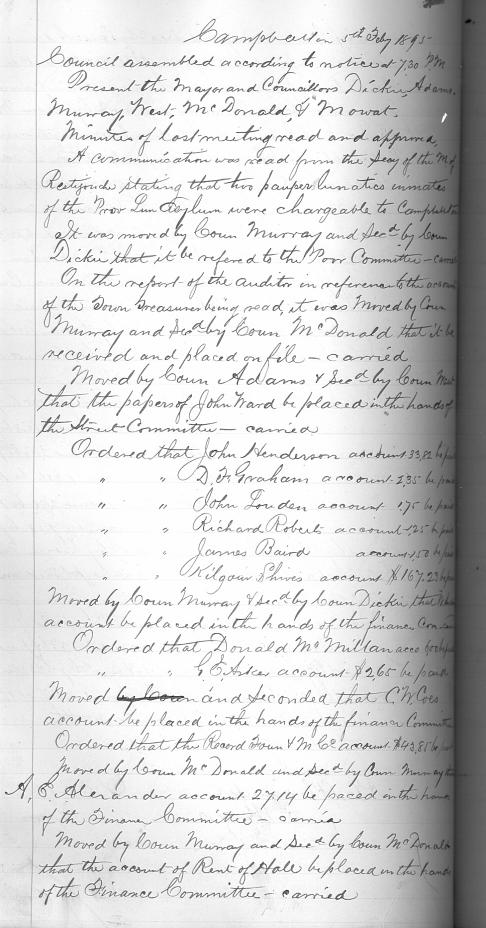 Campbellton 5th Feby 1895
Council assembled according to notice at 7,30 P.M
Present the Mayor and Councillors Dickie Adams.
Murray, West, McDonald, & Mowat.
Minutes of last meeting read and approved,
A communication was read from the Secy of the M of
Restigouche stating that two pauper lunatics inmates
of the Prov Lun Asylum were chargeable to Campbellton
It was moved by Coun Murray and Secd by Coun
Dickie that it be refered to the Poor Committee - carried
On the report of the auditor in reference to the accounts
of the Town Treasurer being read, it was Moved by Coun
Murray and Secd by Coun McDonald that it be
received and placed on file - carried
Moved by Coun Adams & Secd by Coun
that the papers of John Ward be placed in the hands of
the Street Committee - carried
Ordered that John Henderson account 33,82 be
" " D. F. Graham account 2,35 be
" " John Louden account 1,75 be
" " Richard Roberts account 1,25
" " James Baird account 1,50 be
" " Kilgour Shives account $167.23 be
Moved by Coun Murray & Secd by Coun Dickie that
account be placed in the hands of the finance Com
Ordered that Donald McMillan acco
" " account $2,65 be
Moved by Coun and Seconded that C. W.
account be placed in the hands of the finance Committee
Ordered that the Record Foun & M Co account $43,85 be
Moved by Coun McDonald and Secd by Coun Murray
A, E. Alexander account 27.14 be paced in the hands
of the Finance Committee - carried
Moved by Coun Murray and Secd by Coun McDonald
that the account of Rent of Hall be placed in the hands
of the Finance Committee - carried